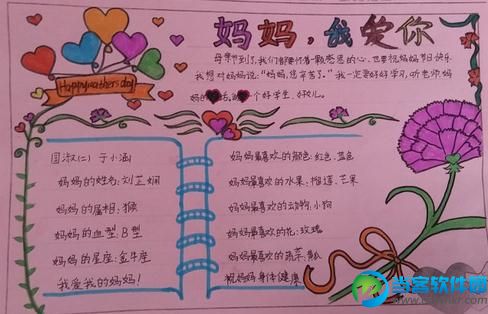 妈妈，我爱你
Happymothersday
母亲节到了，我们都要怀着一颗感恩的心，也要祝妈妈节日快乐。
我想对妈妈说："妈妈，您辛苦了。"我一定要好好学习，听老师妈
妈的话，做一个好学生、好女儿。
国淑(二) 于小涵
妈妈的姓名：刘芷娴
妈妈的属相：猴
妈妈的血型：B型
妈妈的星座：金牛座
我爱我的妈妈！
妈妈最喜欢的颜色：红色、蓝色
妈妈最喜欢的水果：榴莲、芒果
妈妈最喜欢的动物：小狗
妈妈最喜欢的花：玫瑰
妈妈最喜欢的蔬菜：黄瓜
祝妈妈身体健康
当客软件园